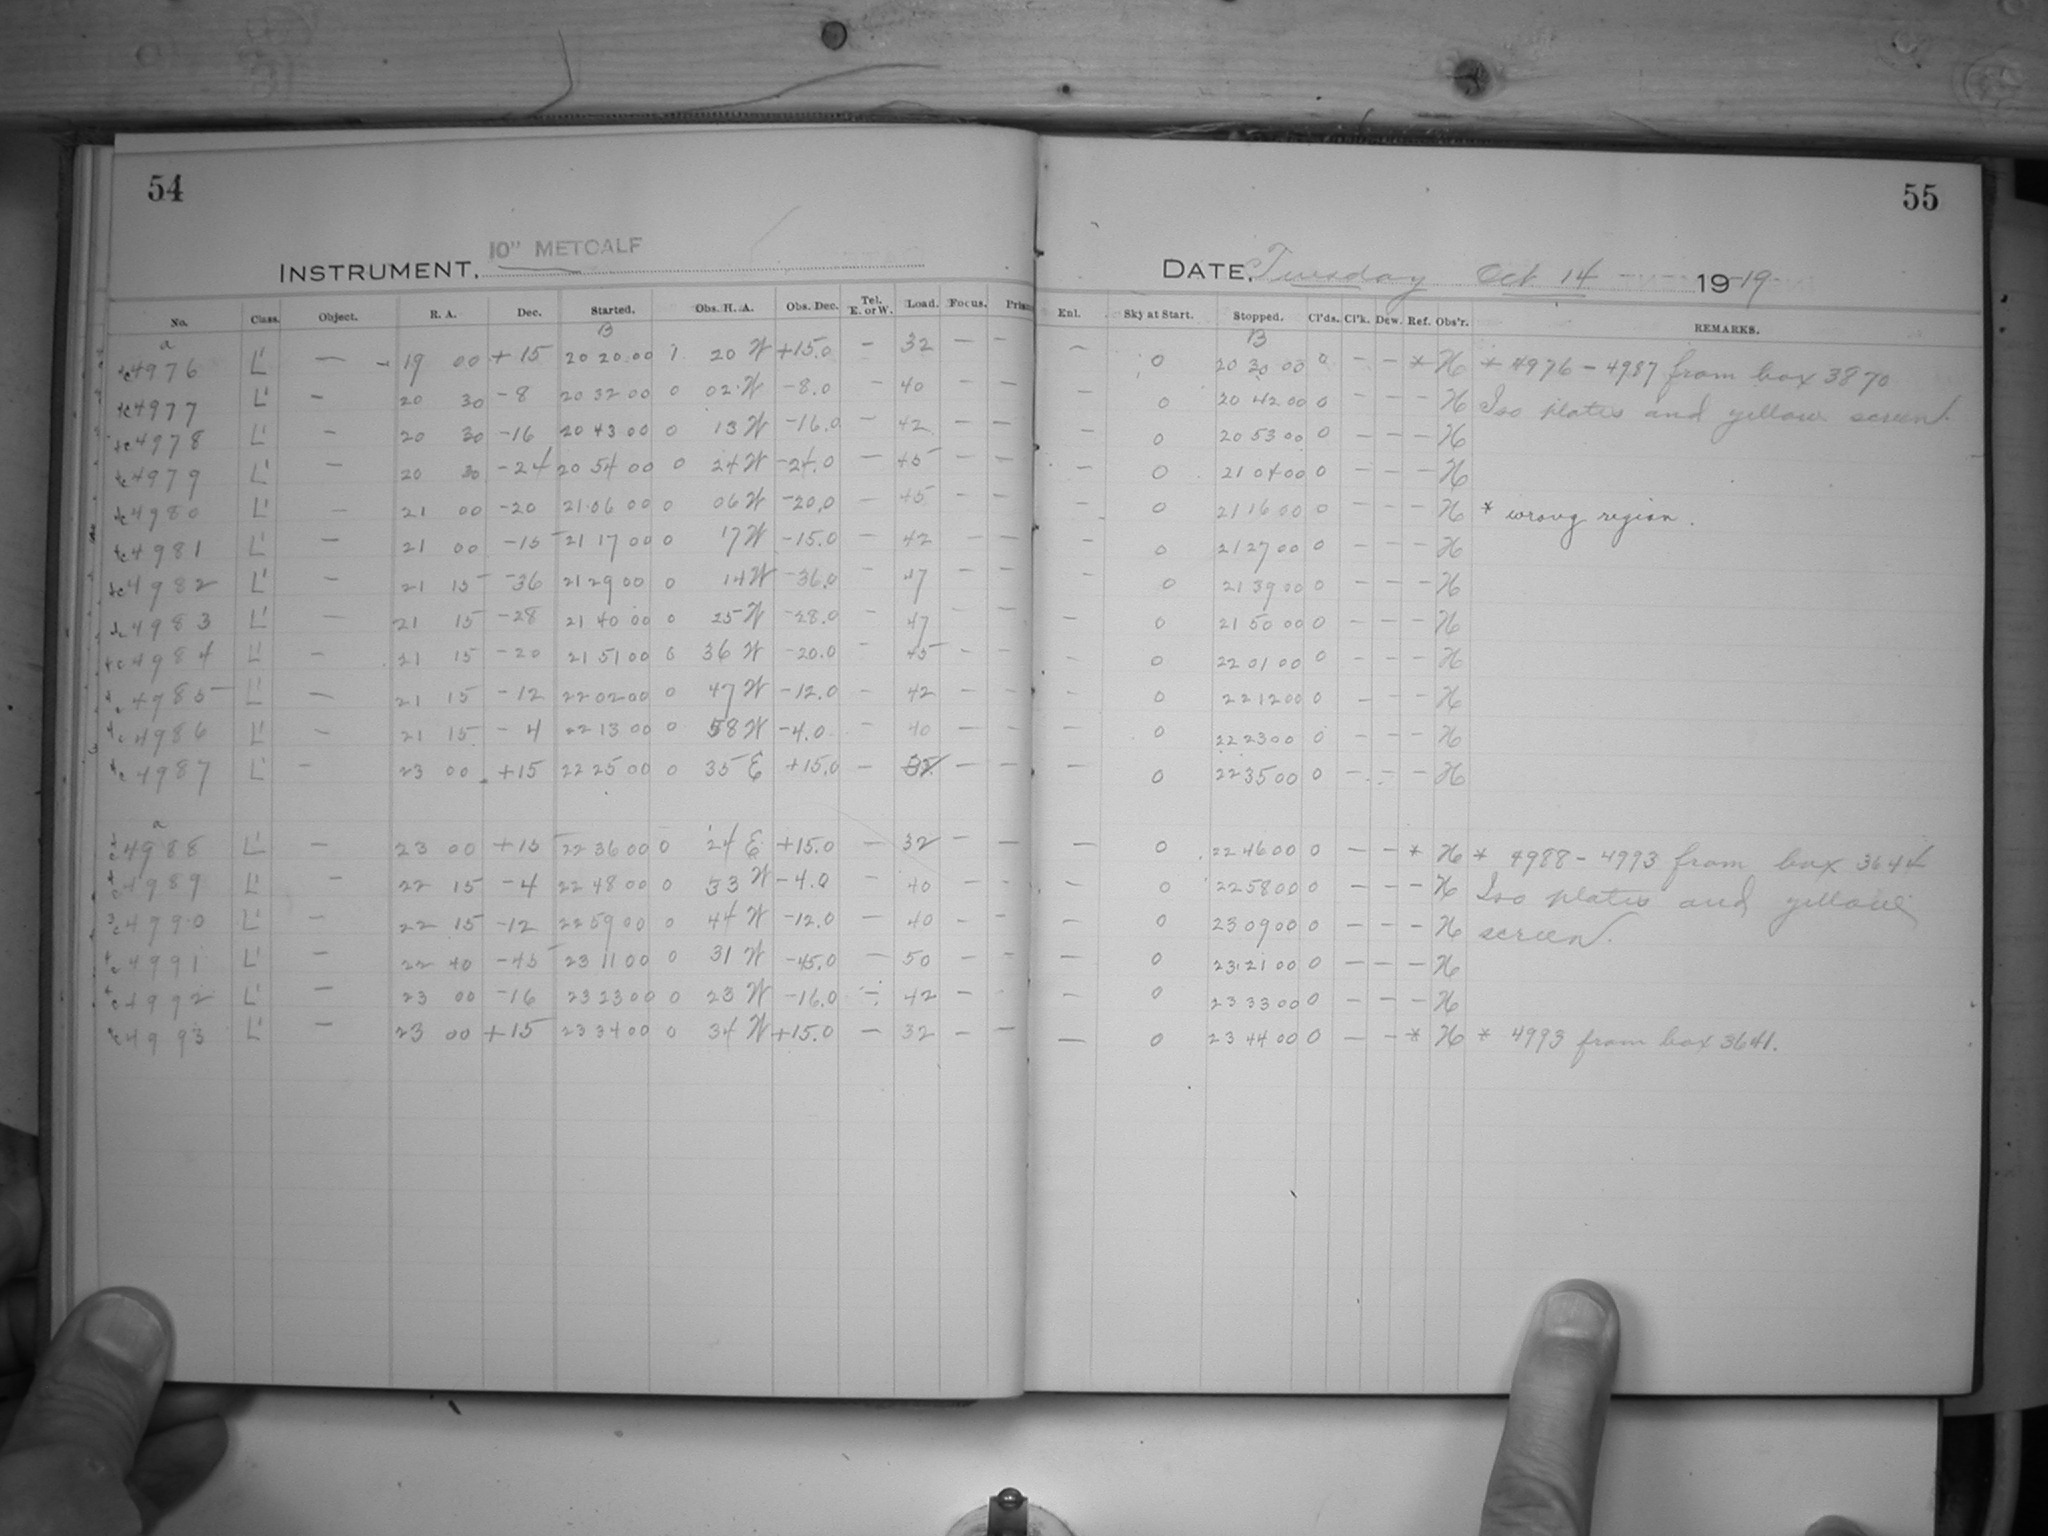 54
10" METCALF
INSTRUMENT.
No. Class. Object. R. A. Dec. Started. Obs. H. A. Obs. Dec. Tel. E. or W. Load. Focus.
B
a
4976 L' — 19 00 +15 20 20 00 1 20 W +15.0 — 32 — —
4977 L' — 20 30 -8 20 32 00 0 02 W -8.0 — 40 — —
4978 L' — 20 30 -16 20 43 00 0 13 W -16.0 — 42 — —
4979 L' — 20 30 -24 20 54 00 0 24 W -24.0 — 45 — —
4980 L' — 21 00 -20 21 06 00 0 06 W -20.0 — 45 — —
4981 L' — 21 00 -15 21 17 00 0 17 W -15.0 — 42 — —
4982 L' — 21 15 -36 21 29 00 0 14 W -36.0 — 47 — —
4983 L' — 21 15 -28 21 40 00 0 25 W -28.0 — 47 — —
4984 L' — 21 15 -20 21 51 00 0 36 W -20.0 — 45 — —
4985 L' — 21 15 -12 22 02 00 0 47 W -12.0 — 42 — —
4986 L' — 21 15 -4 22 13 00 0 58 W -4.0 — 40 — —
4987 L' — 23 00 +15 22 25 00 0 35 E +15.0 — 32 — —
a
4988 L' — 23 00 +15 22 36 00 0 24 E +15.0 — 32 — —
4989 L' — 22 15 -4 22 48 00 0 33 W -4.0 — 40 — —
4990 L' — 22 15 -12 22 59 00 0 44 W -12.0 — 40 — —
4991 L' — 22 40 -45 23 11 00 0 31 W -45.0 — 50 — —
4992 L' — 23 00 -16 23 23 00 0 23 W -16.0 — 42 — —
4993 L' — 23 00 +15 23 34 00 0 34 W +15.0 — 32 — —
55
DATE. Tuesday Oct 14 1919
Enl. Sky at Start. Stopped. Cl'ds. Cl'k. Dew. Ref. Obs'r. REMARKS.
B
— 0 20 30 00 0 — — * H * 4976 - 4987 from box 3870
— 0 20 42 00 0 — — — H Iso plates and yellow screen.
— 0 20 53 00 0 — — — H
— 0 21 04 00 0 — — — H
— 0 21 16 00 0 — — — H * wrong region.
— 0 21 27 00 0 — — — H
— 0 21 39 00 0 — — — H
— 0 21 50 00 0 — — — H
— 0 22 01 00 0 — — — H
— 0 22 12 00 0 — — — H
— 0 22 23 00 0 — — — H
— 0 22 35 00 0 — — — H
— 0 22 46 00 0 — — * H * 4988 - 4993 from box 3644
— 0 22 58 00 0 — — — H Iso plates and yellow
— 0 23 09 00 0 — — — H screen.
— 0 23 21 00 0 — — — H
— 0 23 33 00 0 — — — H
— 0 23 44 00 0 — — * H * 4993 from box 3641.